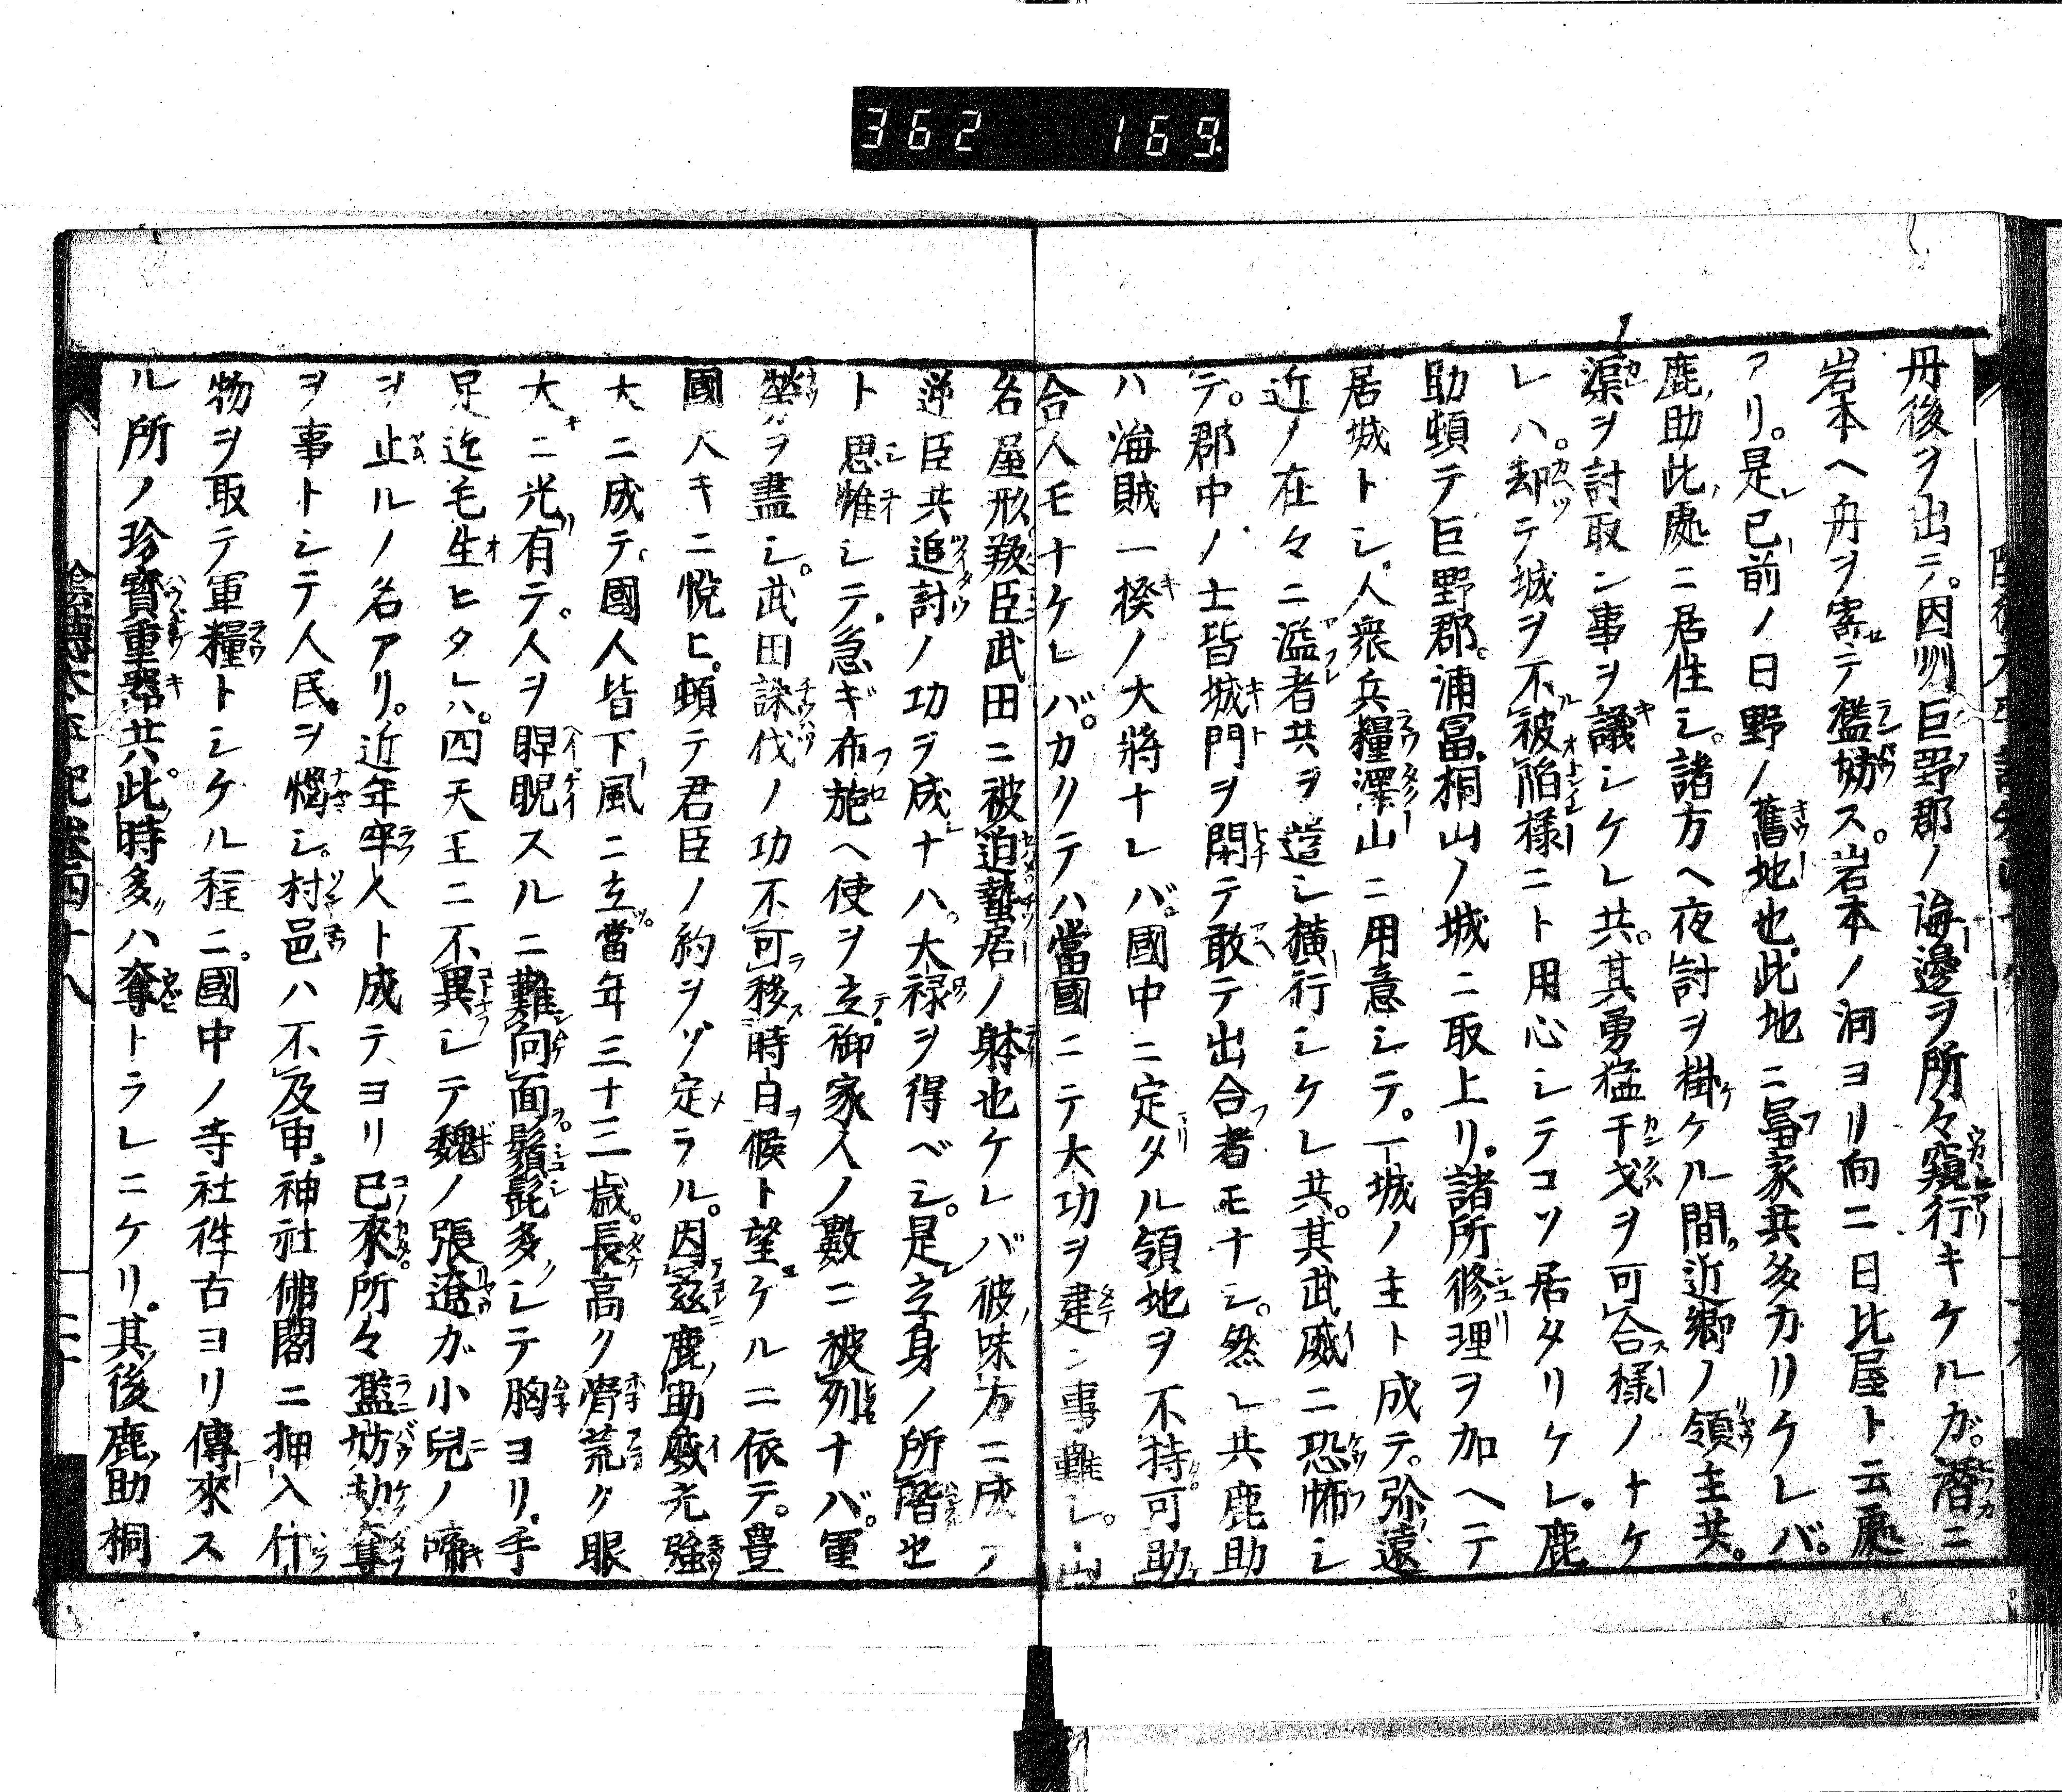 362 169.
丹後ヲ出テ。因州巨野郡ノ海邊ヲ所々窺行キケルガ。潜ニ
岩本ヘ舟ヲ寄テ濫妨ス。岩本ノ洞ヨリ向ニ日比屋ト云處
アリ。是已前ノ日野ノ舊地也。此地ニ冨家共多カリケレバ。
鹿助此處ニ居住シ。諸方ヘ夜討ヲ掛ケル間。近郷ノ領主共。
渠ヲ討取ン事ヲ議シケレ共。其勇猛干戈ヲ可合様ノナケ
レハ。却テ城ヲ不被陥様ニト用心シテコソ居タリケレ。鹿
助頓テ巨野郡。浦冨桐山ノ城ニ取上リ。諸所修理ヲ加ヘテ
居城トシ。人衆兵糧澤山ニ用意シテ。一城ノ主ト成テ。弥遠
近ノ在々ニ溢者共ヲ遣シ横行シケレ共。其武威ニ恐怖シ
テ。郡中ノ士皆城門ヲ閉テ敢テ出合者モナシ。然レ共鹿助
ハ海賊一揆ノ大將ナレバ。國中ニ定タル領地ヲ不持可助
合人モナケレバ。カクテハ當國ニテ大功ヲ建ン事難シ。山
名屋形叛臣武田ニ被迫蟄居ノ躰也ケレバ彼味方ニ成テ
逆臣共追討ノ功ヲ成ナハ。大禄ヲ得ベシ。是立身ノ所階也
ト思惟シテ。急ギ布施ヘ使ヲ立。御家人ノ數ニ被列ナバ。軍
勞ヲ盡シ。武田誅伐ノ功不可移時日候ト望ケルニ依テ。豊
國大キニ悦ヒ。頓テ君臣ノ約ヲゾ定メラル。因茲鹿助威尤強
大ニ成テ。國人皆下風ニ立。當年三十三歳。長高ク骨荒ク眼
大ニ光有テ。人ヲ睥睨スルニ難向面鬚髭多シテ胸ヨリ。手
足迄毛生ヒタレハ。四天王ニ不異シテ魏ノ張遼ガ小兒ノ啼
ヲ止ルノ名アリ。近年牢人ト成テヨリ已來。所々濫妨劫奪
ヲ事トシテ人民ヲ惱シ。村邑ハ不及申。神社佛閣ニ押入什
物ヲ取テ軍糧トシケル程ニ。國中ノ寺社往古ヨリ傳來ス
ル所ノ珍寳重器共。此時多ハ奪トラレニケリ。其後鹿助桐